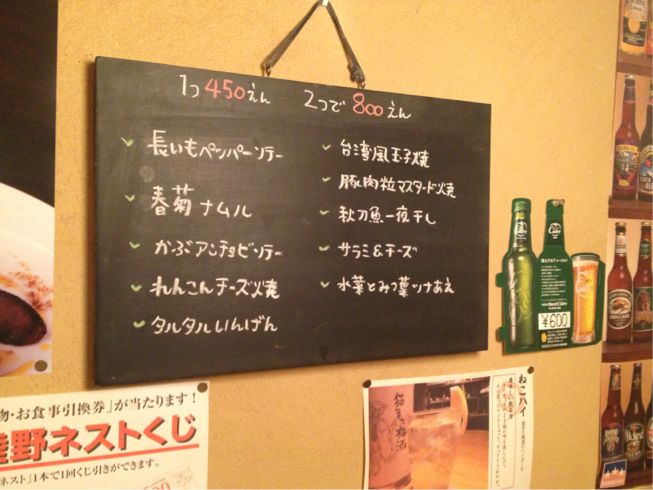 1つ450えん 2つで800えん
長いもペッパーソテー
春菊ナムル
かぶアンチョビソテー
れんこんチーズ焼
タルタルいんげん
台湾風玉子焼
豚肉粒マスタード焼
秋刀魚一夜干し
サラミ&チーズ
水菜とみつ葉ツナあえ
¥600
物・お食事引換券」が当たります!
野ネストくじ
ネスト」1本で1回くじ引きができます。
ねこハイ